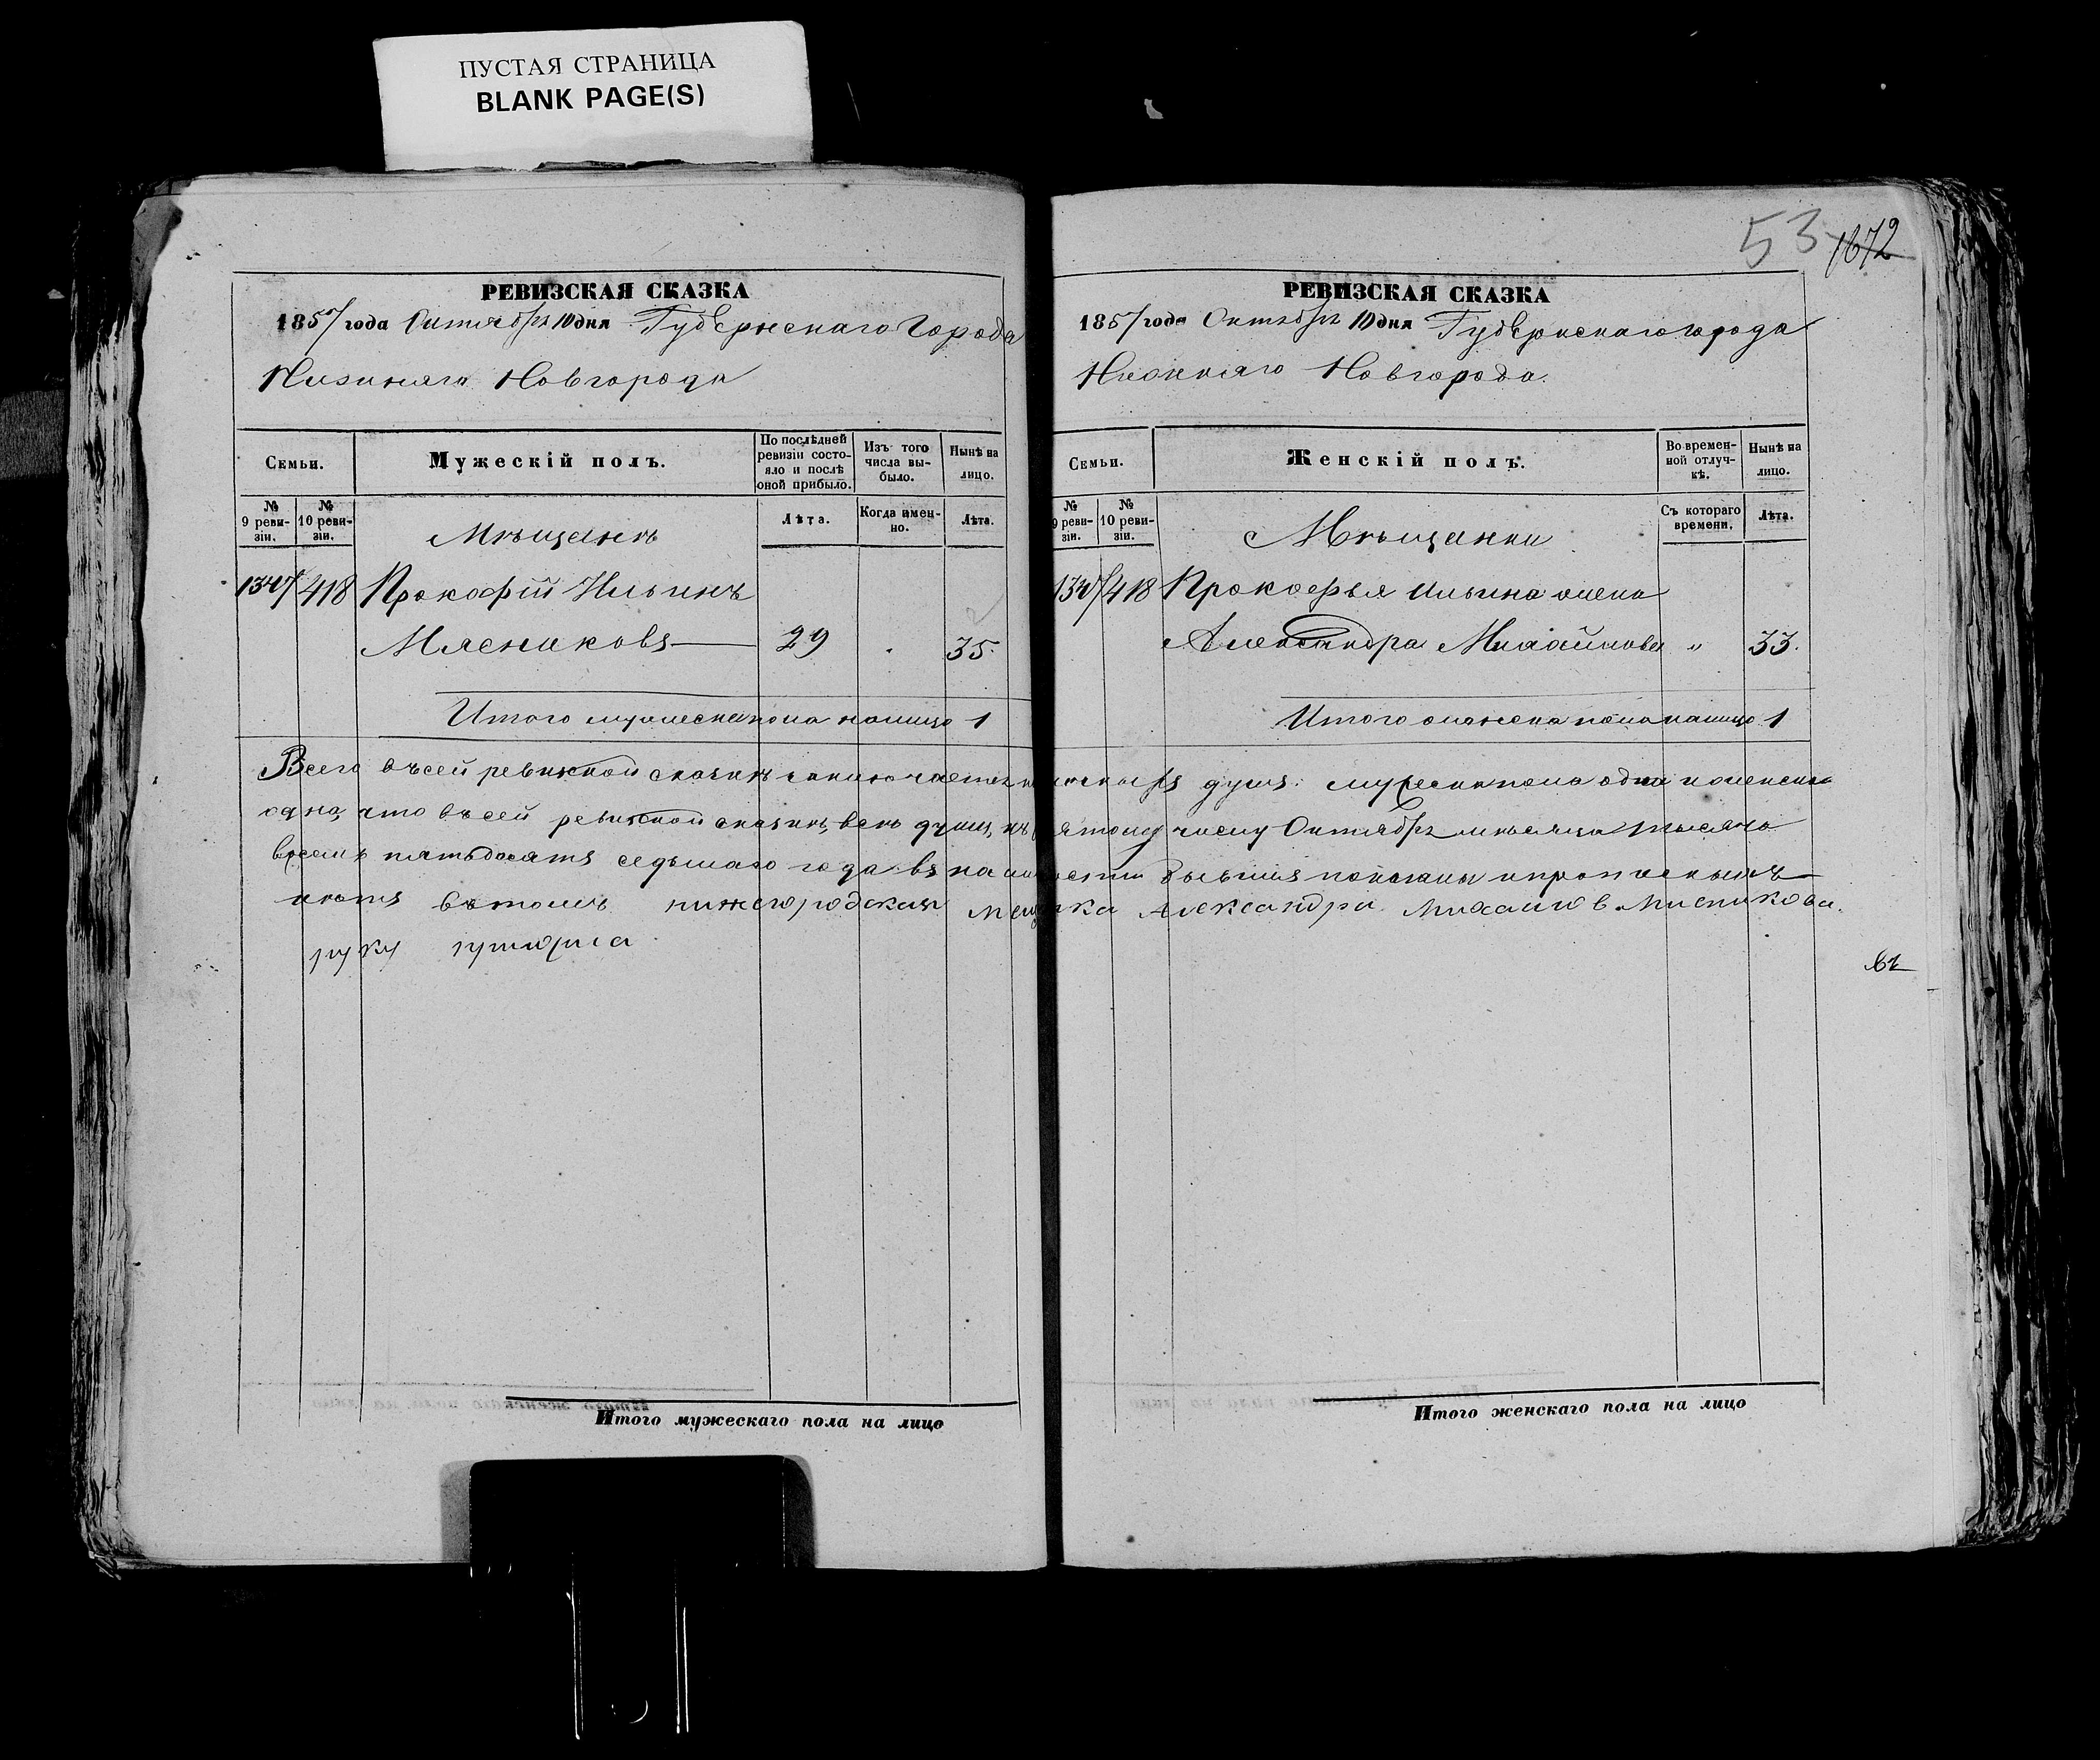 ПУСТАЯ СТРАНИЦА
BLANK PAGE(S)
РЕВИЗСКАЯ СКАЗКА
1857 года Октября 10 дня Губернскаго Города
Нижняго Новгорода
Семьи.
Мужескій полъ.
По послѣдней ревизіи состояло и послѣ оной прибыло.
Изъ того числа выбыло.
Нынѣ на лицо.
№ 9 ревизіи.
№ 10 ревизіи.
Мѣщанинъ
Лѣта.
Когда именно.
Лѣта.
418 Прокофій Ильинъ
Мясниковъ 29 35.
Итого мужеска пола налицо 1
53 1672
РЕВИЗСКАЯ СКАЗКА
1857 года Октября 10 дня Губернскаго города
Нижняго Новгорода.
Семьи.
Женскій полъ.
Во временной отлучкѣ.
Нынѣ на лицо.
№ 9 ревизіи.
№ 10 ревизіи.
Мѣщанки
Съ котораго времени.
Лѣта.
418 Прокофья Ильина жена
Александра Михайлова " 33.
Итого женска пола налицо 1
Всего въ сей ревизской сказкѣ заключается душъ: мужеска пола одна и женска
одна, что въ сей ревизской сказкѣ, всѣ души, къ числу Октября мѣсяца тысяча
пятьдесятъ седьмаго года въ наличности бывшія показаны и прописныхъ
нѣтъ въ томъ нижегородская мещанка Александра Михайлов Мясникова.
руку
въ
Итого мужескаго пола на лицо
Итого женскаго пола на лицо